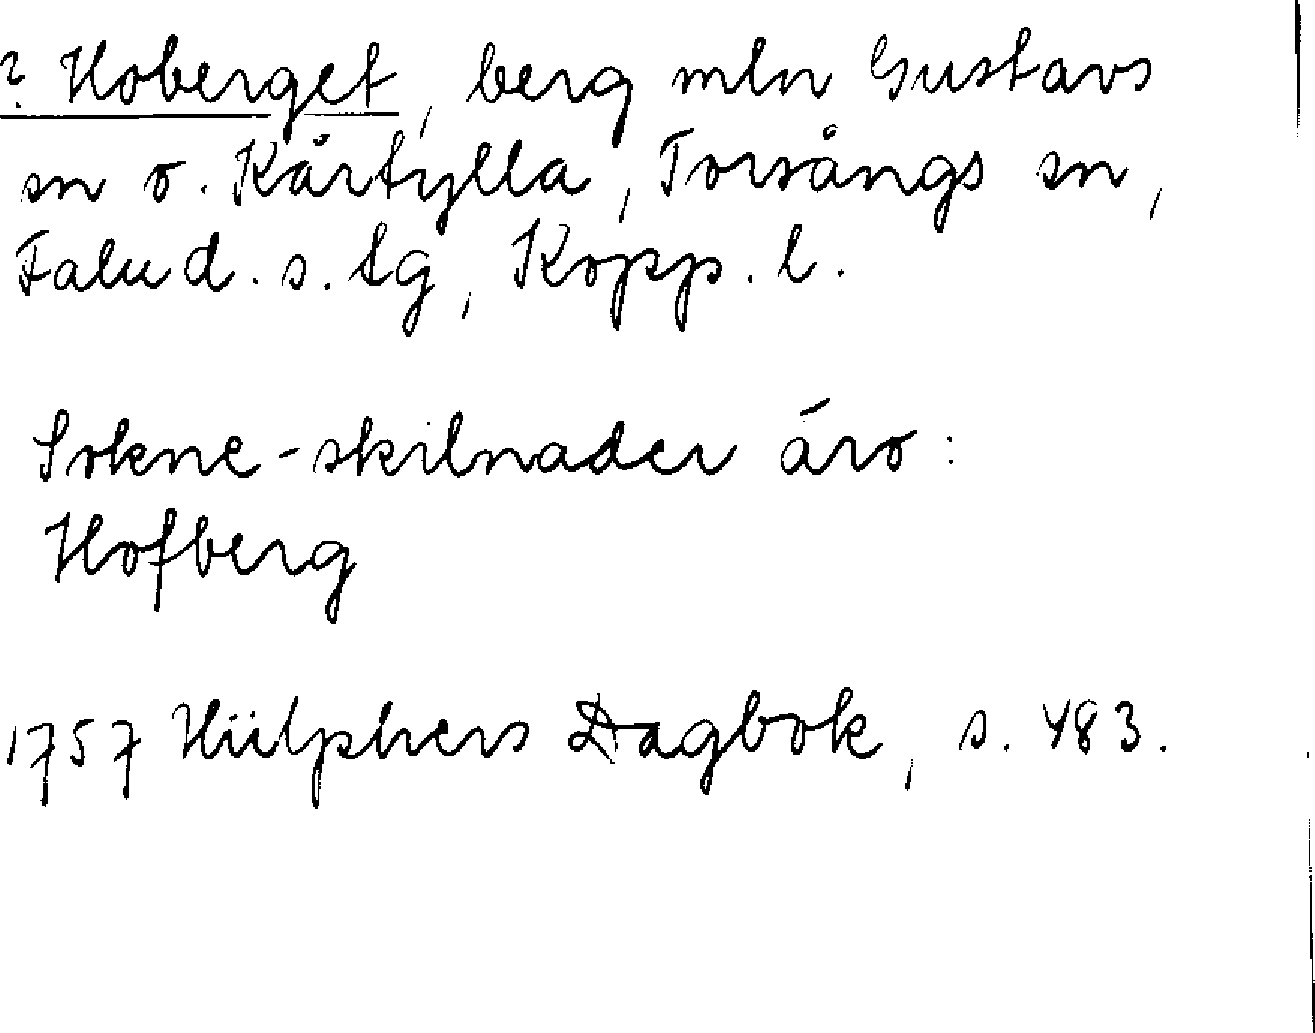 ? Hoberget, berg mln Gustavs
sn o. Kårtylla, Torsångs sn,
Falu d. s. tg, Kopp. l.
Sokne-skilnader äro:
Hofberg
1757 Hülphers Dagbok, s. 483.